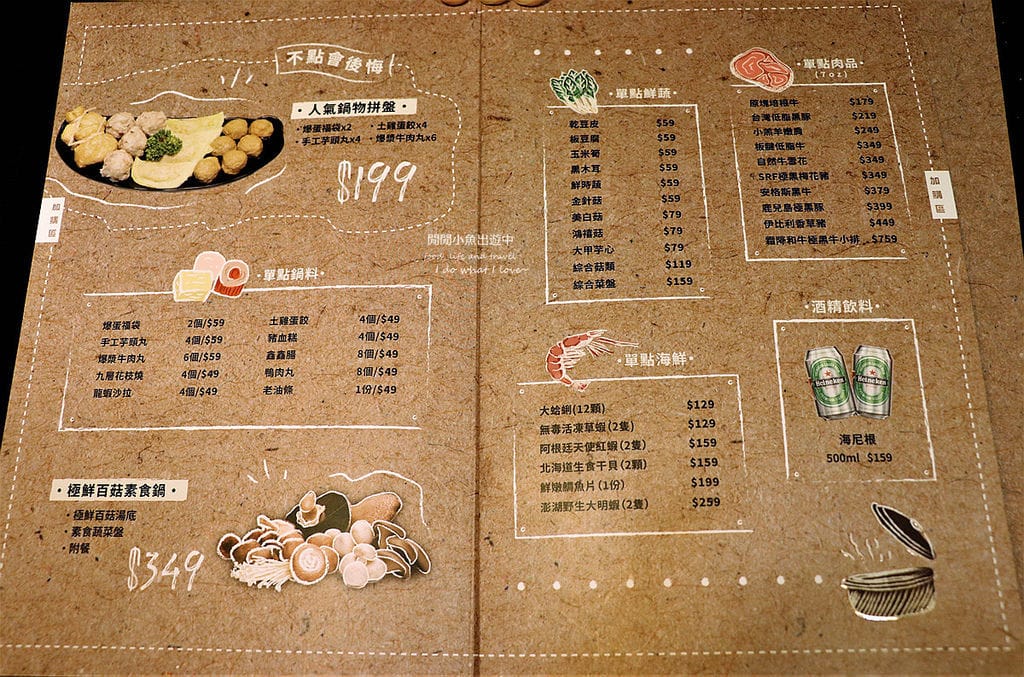 不點會後悔
·人氣鍋物拼盤·
·爆蛋福袋x2 ·土雞蛋餃x4
·手工芋頭丸x4 ·爆漿牛肉丸x6
$199
加購區
閒閒小魚出遊中
Food, life and travel
I do what I love
·單點鍋料·
爆蛋福袋 2個/$59 土雞蛋餃 4個/$49
手工芋頭丸 4個/$59 豬血糕 4個/$49
爆漿牛肉丸 6個/$59 鑫鑫腸 8個/$49
九層花枝燒 4個/$49 鴨肉丸 8個/$49
龍蝦沙拉 4個/$49 老油條 1份/$49
·極鮮百菇素食鍋·
·極鮮百菇湯底
·素食蔬菜盤
·附餐
$349
·單點鮮蔬·
乾豆皮 $59
板豆腐 $59
玉米筍 $59
黑木耳 $59
鮮時蔬 $59
金針菇 $59
美白菇 $79
鴻禧菇 $79
大甲芋心 $79
綜合菇類 $119
綜合菜盤 $159
·單點肉品·
(7oz)
原塊培根牛 $179
台灣低脂黑豚 $219
小羔羊嫩肩 $249
板腱低脂牛 $349
自然牛雪花 $349
SRF極黑梅花豬 $349
安格斯黑牛 $379
鹿兒島極黑豚 $399
伊比利香草豬 $449
霜降和牛極黑牛小排 $759
加購區
·單點海鮮·
大蛤蜊(12顆) $129
無毒活凍草蝦(2隻) $129
阿根廷天使紅蝦(2隻) $159
北海道生食干貝(2顆) $159
鮮嫩鯛魚片(1份) $199
澎湖野生大明蝦(2隻) $259
·酒精飲料·
Heineken
Heineken
海尼根
500ml $159